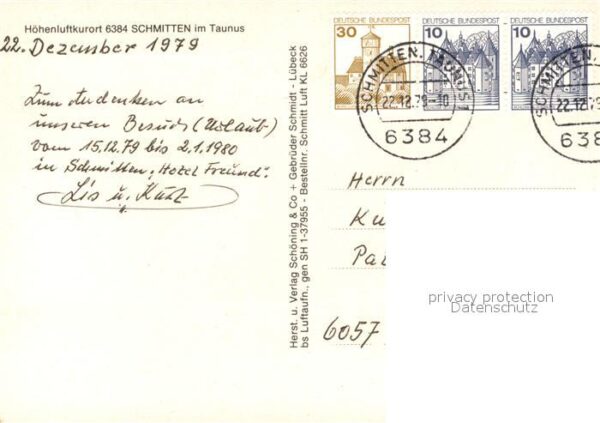 Höhenluftkurort 6384 SCHMITTEN im Taunus
22. Dezember 1979
Zum Andenken an
unseren Besuch (Urlaub)
vom 15.12.79 bis 2.1.1980
in Schmitten „Hotel Freund“.
Lis u. Kurt
Herst. u. Verlag Schöning & Co + Gebrüder Schmidt - Lübeck
bs Luftaufn., gen SH 1-37955 - Bestellnr. Schmitt Luft KL 6626
DEUTSCHE BUNDESPOST
30
DEUTSCHE BUNDESPOST
10
DEUTSCHE BUNDESPOST
10
SCHMITTEN, TAUNUS 1
22.12.79-10
6384
SCHMITTEN
22.12.79
638
Herrn
Ku
Pa
6057
privacy protection
Datenschutz